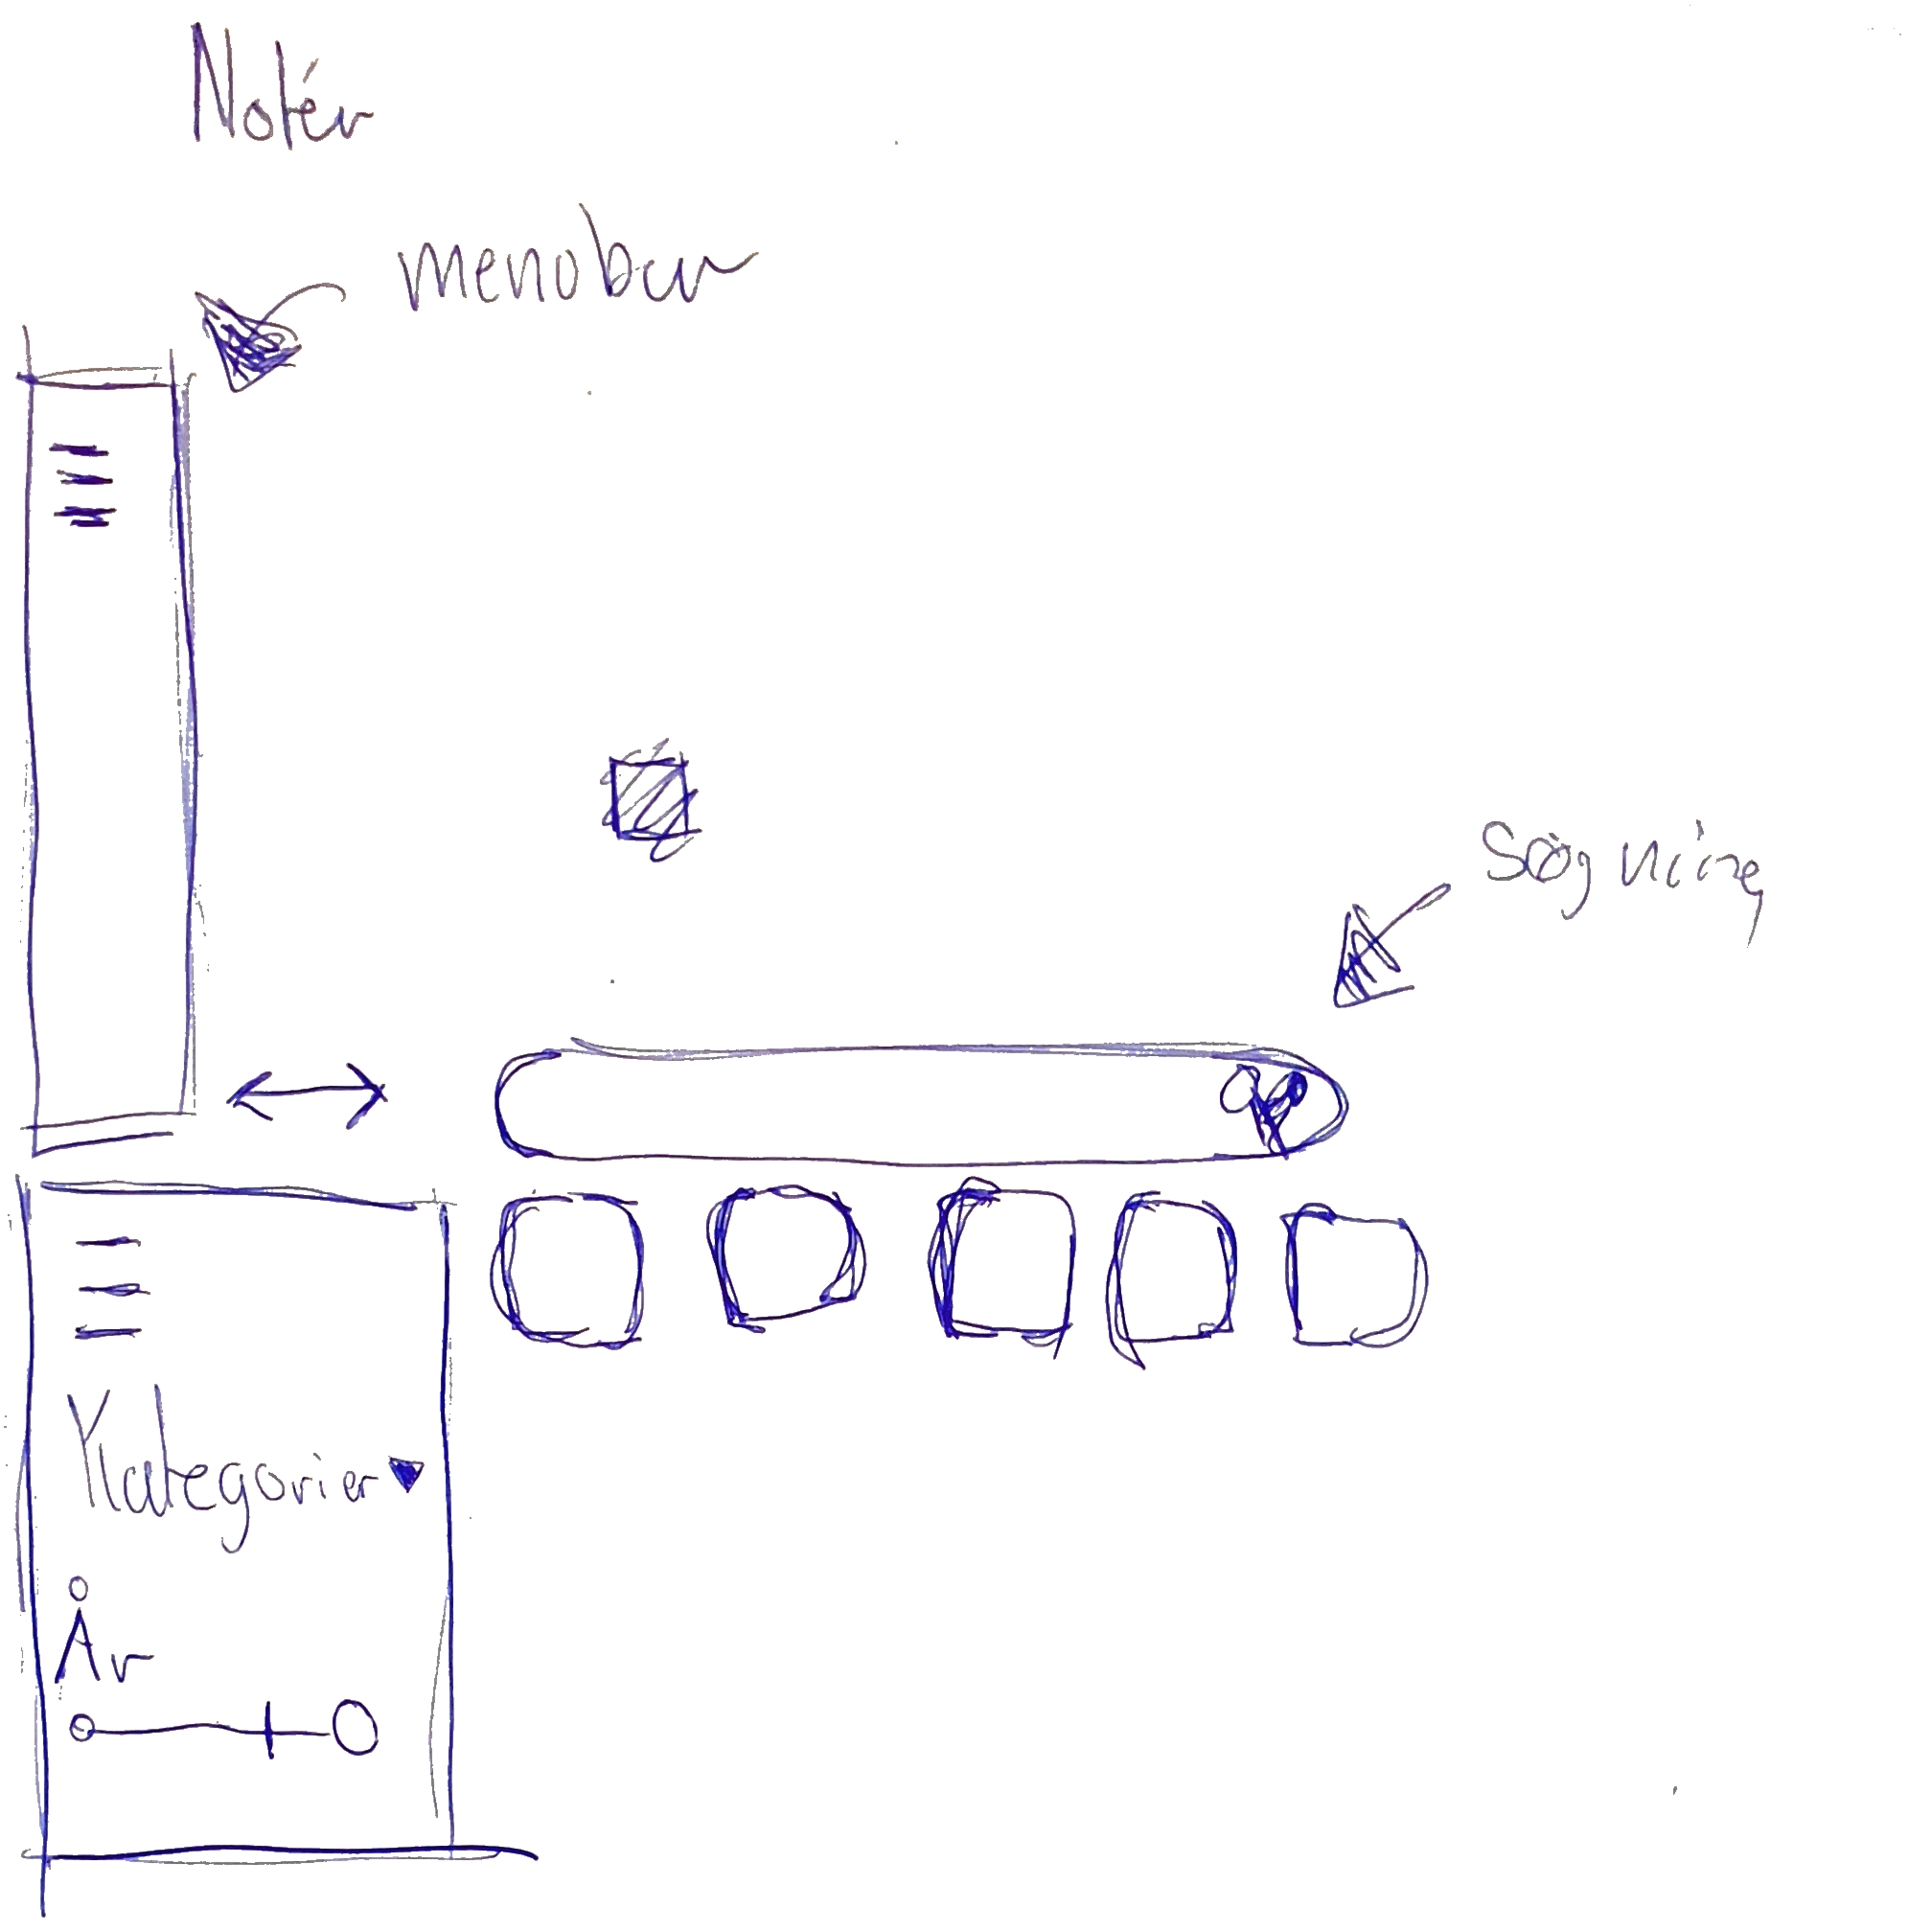 Notér
menobar
Søgning
Kategorier
År